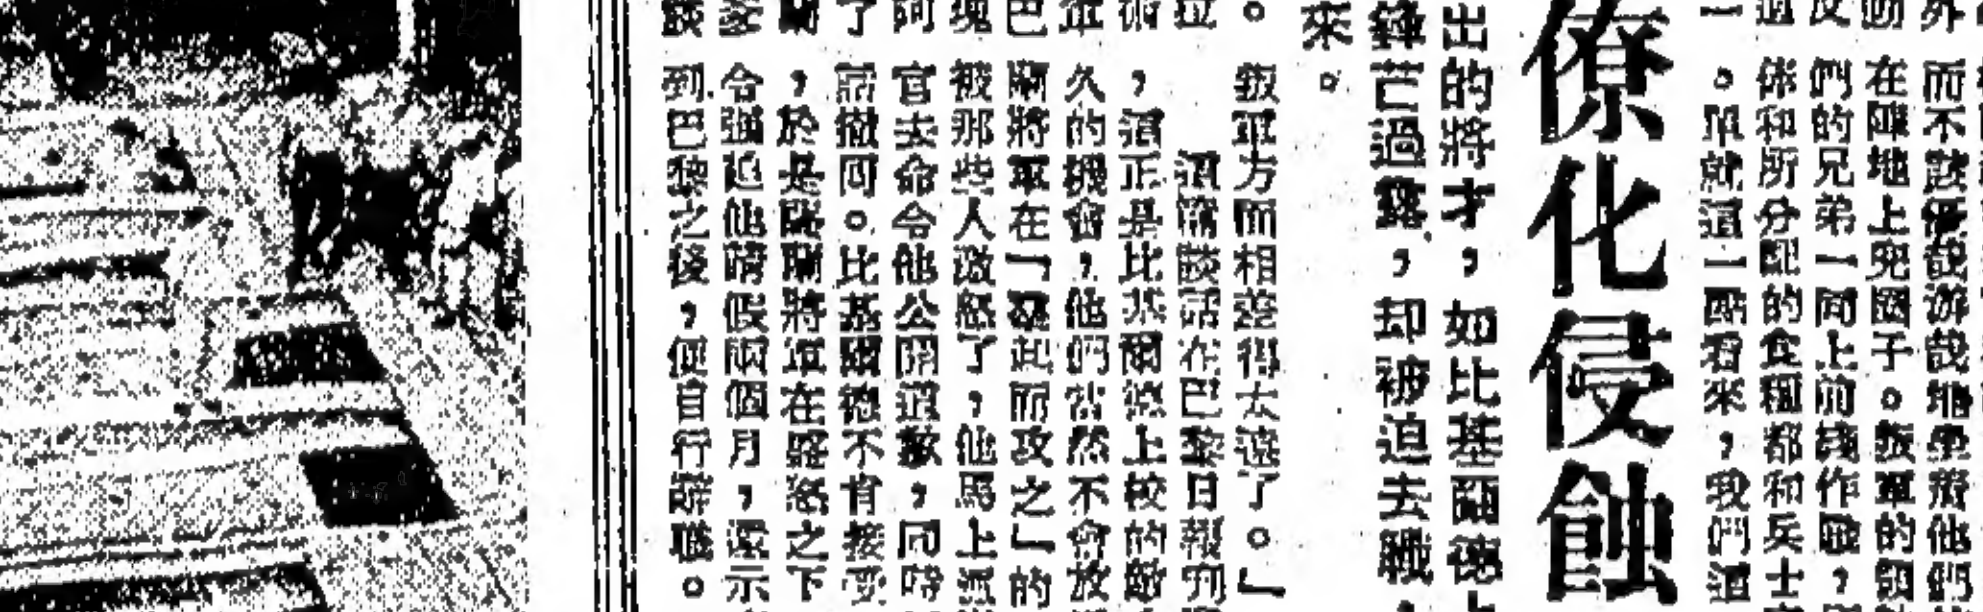 外而不該優哉游哉地坐待他們
動在陣地上兜圈子。叛軍的領
反們的兄弟一同上前綫作戰，
這係和所分配的食糧都和兵士
一。單就這一點看來，我們這
僚化侵蝕
出的將才，如比基爾德上
鋒芒過露，却被迫去職，
來。
。叛軍方面相差得太遠了。」
拉這篇談話在巴黎日報刊
術，這正是比基爾德上校的敵
軍久的機會，他們當然不會放
巴蘭將軍在「羣起而攻之」的
塊被那些人激怒了，他馬上派
阿官去命令他公開道歉，同時
了撤回。比基爾德不肯接受
蘭，於是薩蘭將軍在盛怒之下
多令強迫他請假兩個月，還示
談到巴黎之後，便自行辭職。